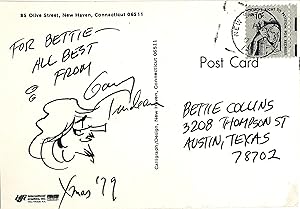 85 Olive Street, New Haven, Connecticut 06511
FOR BETTIE—
ALL BEST
FROM
Garry
Trudeau
Xmas '79
Caligraph/Design, New Haven, Connecticut 06511
Post Card
BETTIE COLLINS
3208 THOMPSON ST
AUSTIN, TEXAS
78702
10c